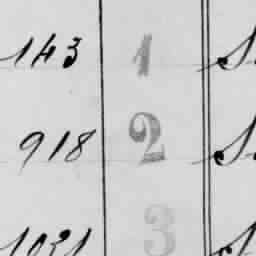 143 1
918 2
1031 3